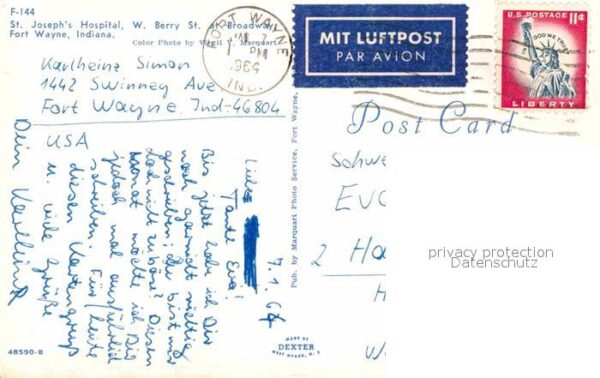 F-144
St. Joseph's Hospital, W. Berry St. at Broadway,
Fort Wayne, Indiana.
Color Photo by Virgil Y. Marquart
Karlheinz Simon
1442 Swinney Ave
Fort Wayne, Ind-46804
USA
7.1.64
Liebe
Tante Eva!
Bis jetzt habe ich Dir
noch garnicht richtig
geschrieben; Du bist mir
doch nicht zu böse? Diesen
Monat möchte ich Dir
jedoch mal ausführlich
schreiben. Für heute
diesen Kartengruß
u. viele Grüße
Dein Karlheinz
48590-B
Pub. by Marquart Photo Service, Fort Wayne,
MADE BY
DEXTER
WEST NYACK, N. Y.
FORT WAYNE
7
PM
1964
IND.
MIT LUFTPOST
PAR AVION
U.S. POSTAGE 11¢
IN GOD WE TRUST
LIBERTY
Post Card
Schwe
Eva
2 Ha
privacy protection
Datenschutz